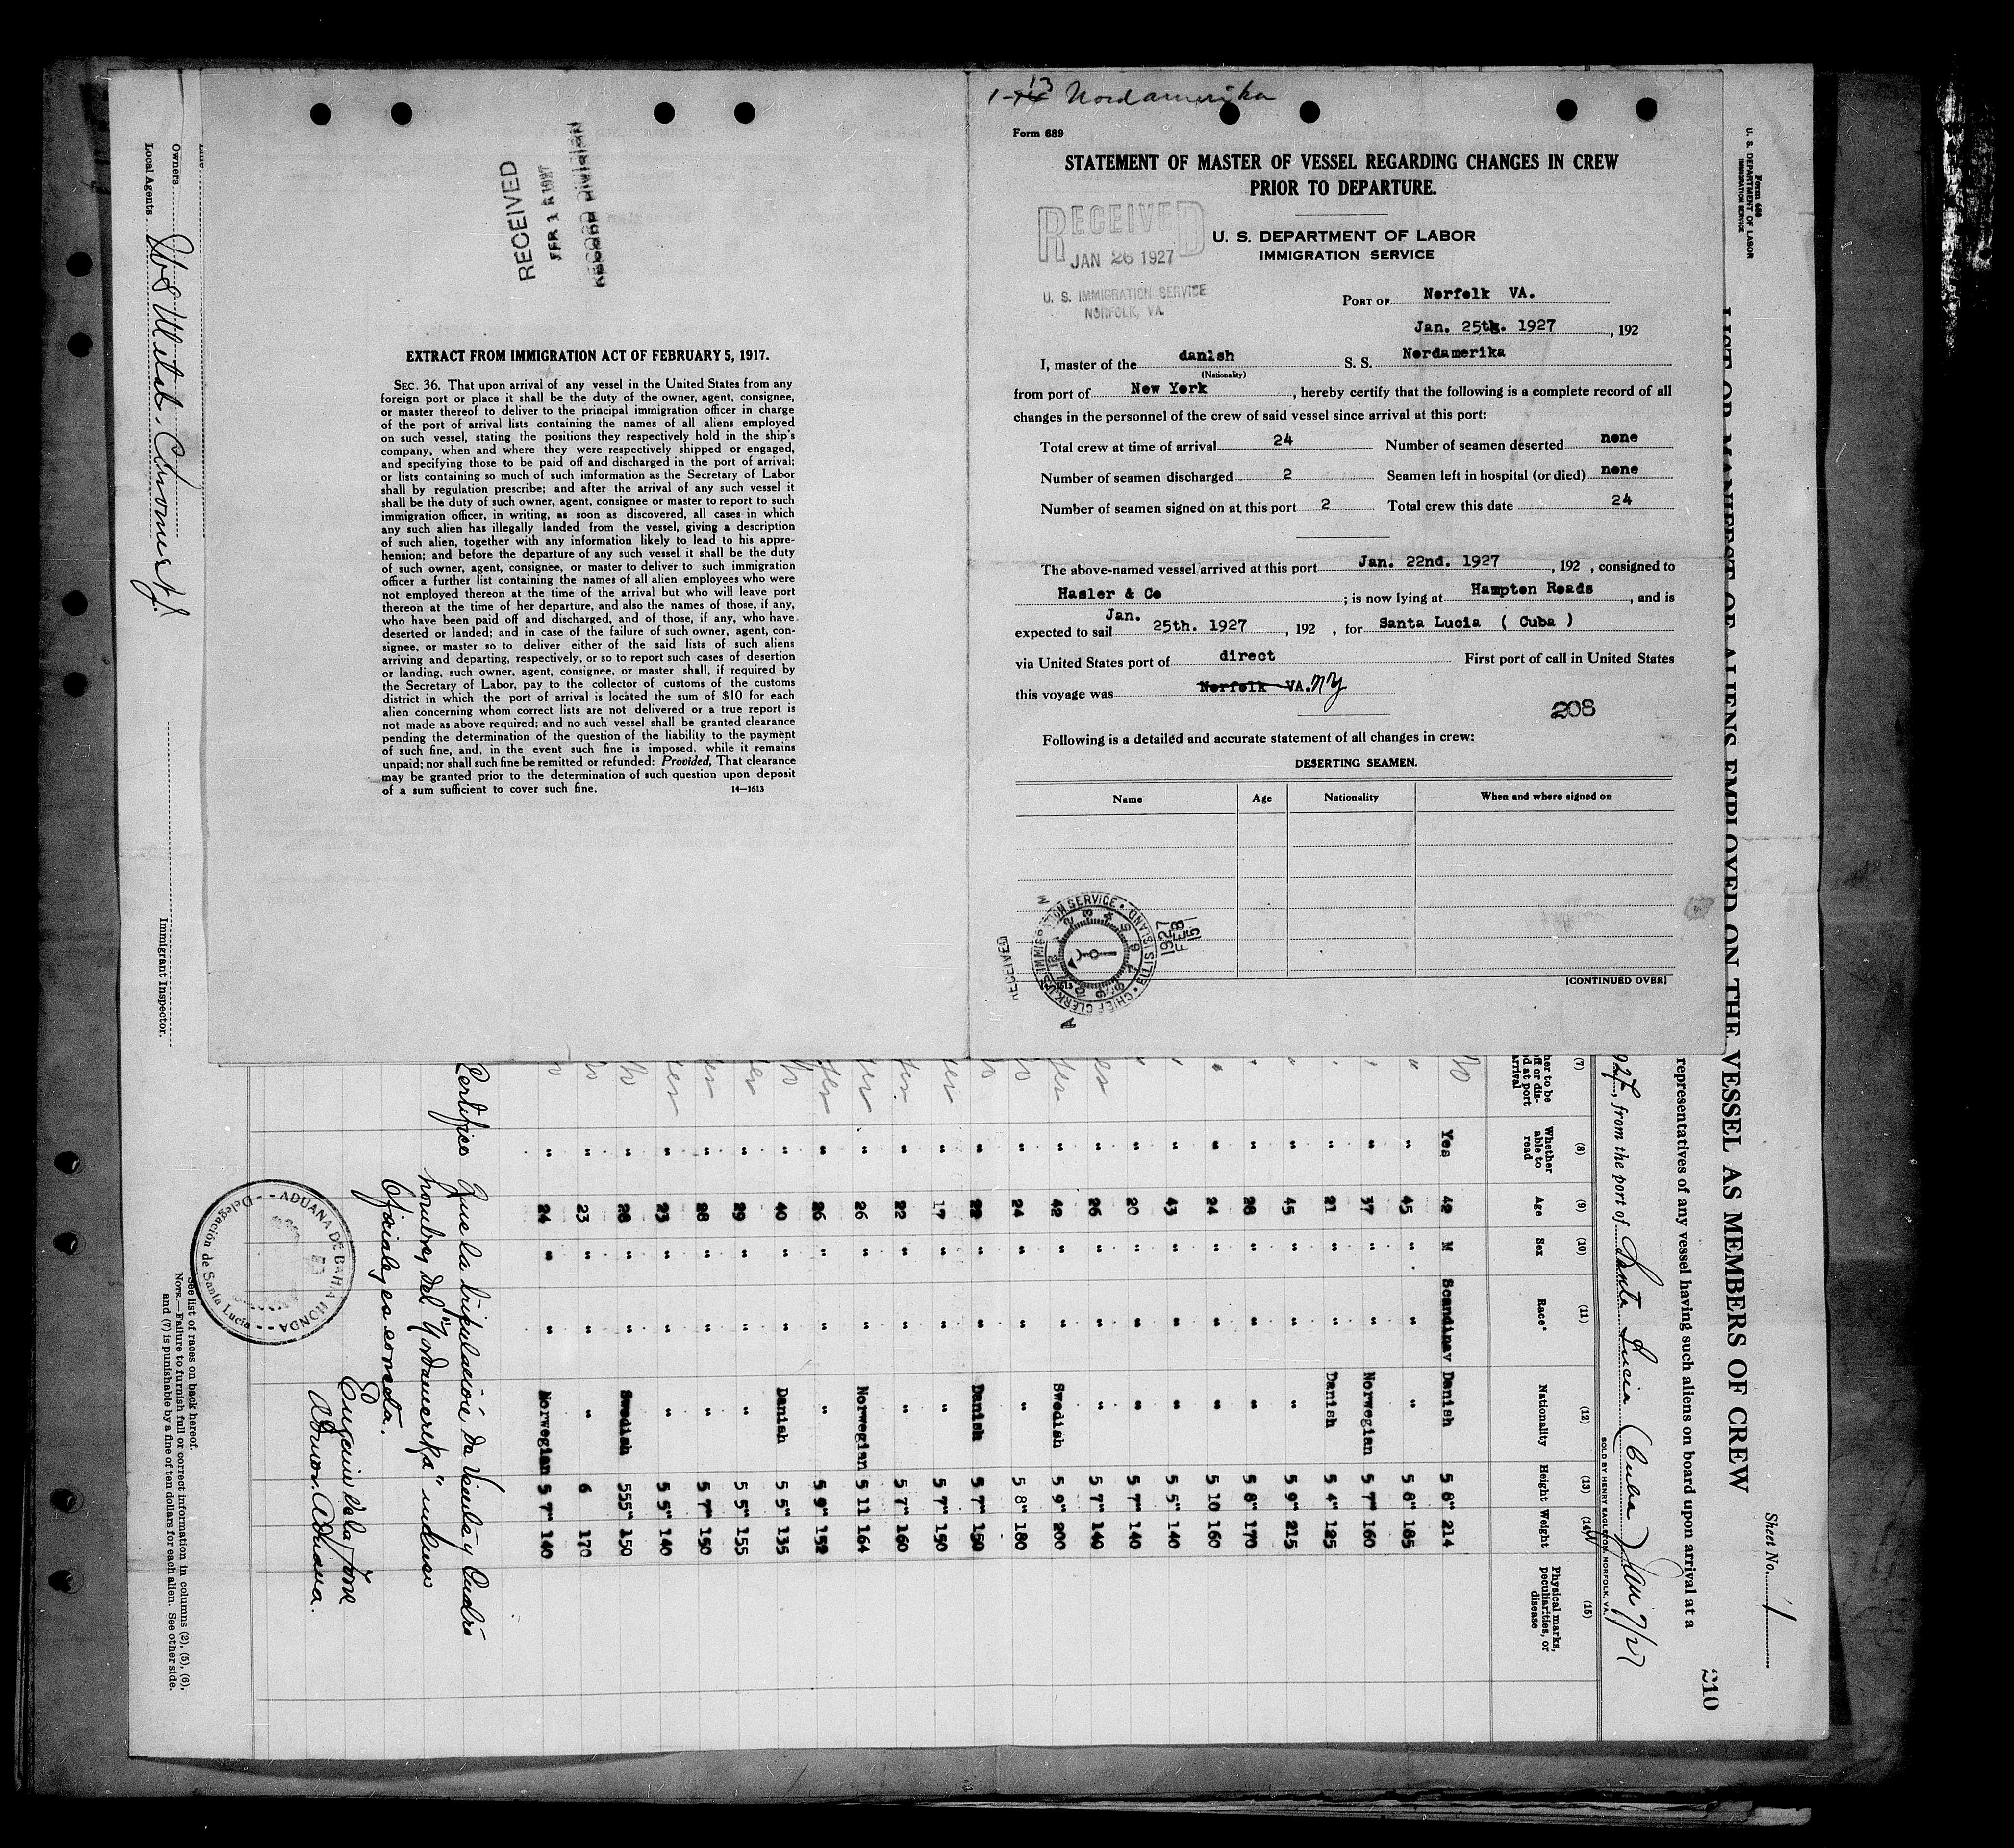 1-13 Nordamerika
Form 689
STATEMENT OF MASTER OF VESSEL REGARDING CHANGES IN CREW
PRIOR TO DEPARTURE.
RECEIVED
JAN 26 1927
U. S. IMMIGRATION SERVICE
NORFOLK, VA
U. S. DEPARTMENT OF LABOR
IMMIGRATION SERVICE
PORT OF Norfolk VA.
Jan. 25th. 1927, 192
I, master of the danish S. S. Nordamerika
(Nationality)
from port of New York, hereby certify that the following is a complete record of all
changes in the personnel of the crew of said vessel since arrival at this port:
Total crew at time of arrival 24 Number of seamen deserted none
Number of seamen discharged 2 Seamen left in hospital (or died) none
Number of seamen signed on at this port 2 Total crew this date 24
The above-named vessel arrived at this port Jan. 22nd. 1927, 192 , consigned to
Hasler & Co ; is now lying at Hampton Roads, and is
expected to sail Jan. 25th. 1927, 192 , for Santa Lucia ( Cuba )
via United States port of direct First port of call in United States
this voyage was Norfolk VA. NY
208
Following is a detailed and accurate statement of all changes in crew:
DESERTING SEAMEN.
Name Age Nationality When and where signed on
[CONTINUED OVER]
RECEIVED
CHIEF CLERK, U.S. IMMIGRATION SERVICE • ELLIS ISLAND •
1927
FEB
15
RECEIVED
FEB 1 1927
RECORD DIVISION
EXTRACT FROM IMMIGRATION ACT OF FEBRUARY 5, 1917.
SEC. 36. That upon arrival of any vessel in the United States from any
foreign port or place it shall be the duty of the owner, agent, consignee,
or master thereof to deliver to the principal immigration officer in charge
of the port of arrival lists containing the names of all aliens employed
on such vessel, stating the positions they respectively hold in the ship's
company, when and where they were respectively shipped or engaged,
and specifying those to be paid off and discharged in the port of arrival;
or lists containing so much of such imformation as the Secretary of Labor
shall by regulation prescribe; and after the arrival of any such vessel it
shall be the duty of such owner, agent, consignee or master to report to such
immigration officer, in writing, as soon as discovered, all cases in which
any such alien has illegally landed from the vessel, giving a description
of such alien, together with any information likely to lead to his appre-
hension; and before the departure of any such vessel it shall be the duty
of such owner, agent, consignee, or master to deliver to such immigration
officer a further list containing the names of all alien employees who were
not employed thereon at the time of the arrival but who will leave port
thereon at the time of her departure, and also the names of those, if any,
who have been paid off and discharged, and of those, if any, who have
deserted or landed; and in case of the failure of such owner, agent, con-
signee, or master so to deliver either of the said lists of such aliens
arriving and departing, respectively, or so to report such cases of desertion
or landing, such owner, agent, consignee, or master shall, if required by
the Secretary of Labor, pay to the collector of customs of the customs
district in which the port of arrival is located the sum of $10 for each
alien concerning whom correct lists are not delivered or a true report is
not made as above required; and no such vessel shall be granted clearance
pending the determination of the question of the liability to the payment
of such fine, and, in the event such fine is imposed, while it remains
unpaid; nor shall such fine be remitted or refunded: Provided, That clearance
may be granted prior to the determination of such question upon deposit
of a sum sufficient to cover such fine. 14—1613
Form 689
U. S. DEPARTMENT OF LABOR
IMMIGRATION SERVICE
Sheet No. 1
LIST OR MANIFEST OF ALIENS EMPLOYED ON THE VESSEL AS MEMBERS OF CREW
210
representatives of any vessel having such aliens on board upon arrival at a
1927, from the port of Santa Lucia (Cuba) Jan 7/27
SOLD BY HENRY EAGLETON, NORFOLK, VA.
(7) (8) (9) (10) (11) (12) (13) (14) (15)
Whether able to read Age Sex Race* Nationality Height Weight Physical marks, peculiarities, or disease
No Yes 42 M Scandinav Danish 5 8" 214
" " 45 " " " 5 8" 185
" " 37 " " Norwegian 5 7" 160
" " 21 " " Danish 5 4" 125
" " 45 " " " 5 9" 215
" " 28 " " " 5 8" 170
" " 24 " " " 5 10 160
" " 43 " " " 5 5" 140
" " 20 " " " 5 7" 140
yes " 26 " " " 5 7" 140
yes " 42 " " Swedish 5 9" 200
No " 24 " " " 5 8" 180
No " 22 " " Danish 5 7" 150
yes " 17 " " " 5 7" 150
yes " 22 " " " 5 7" 160
yes " 26 " " Norwegian 5 11 164
yes " 26 " " " 5 9" 152
No " 40 " " Danish 5 5" 135
yes " 29 " " " 5 5" 155
yes " 28 " " " 5 7" 150
yes " 23 " " " 5 5" 140
No " 28 " " Swedish 555" 150
No " 23 " " " 6 170
No " 24 " " Norwegian 5 7" 140
Certifico que la tripulación de veinte y cuatro
hombres del "Nordamerika" incluso
Oficiales es exacta.
Eugenio de la Torre
Admon. Aduana.
ADUANA DE BAHIA HONDA
Delegación de Santa Lucia
See list of races on back hereof.
NOTE.—Failure to furnish full or correct information in columns (2), (5), (6),
and (7) is punishable by a fine of ten dollars for each alien. See other side.
Immigrant Inspector.
Line
Owners
Local Agents